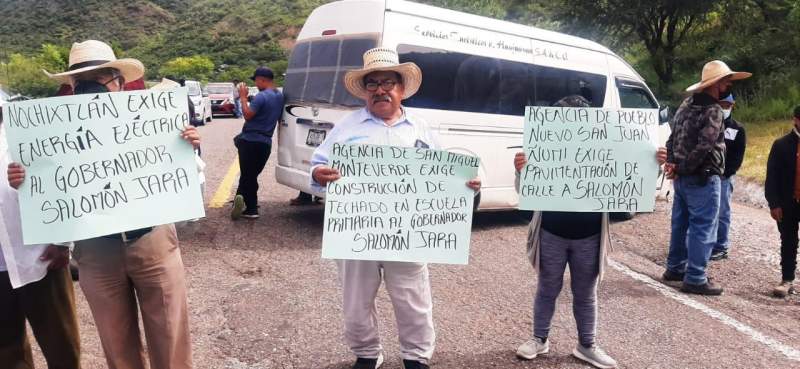 Servicios Turísticos
S.A. de C.V.
NOCHIXTLAN EXIGE
ENERGÍA ELÉCTRICA
AL GOBERNADOR
SALOMÓN JARA
AGENCIA DE SAN MIGUEL
MONTEVERDE EXIGE
CONSTRUCIÓN DE
TECHADO EN ESCUELA
PRIMARIA AL GOBERNADOR
SALOMÓN JARA
AGENCIA DE PUEBLO
NUEVO SAN JUAN
ÑUMI EXIGE
PAVIMENTACIÓN DE
CALLE A SALOMÓN
JARA